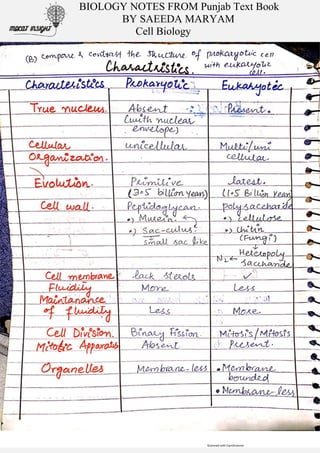 BIOLOGY NOTES FROM Punjab Text Book
BY SAEEDA MARYAM
Cell Biology
MDCAT INSIGHT
(B) Compare & contrast the structure of prokaryotic cell
with eukaryotic cell.
Charactristics.
Characteristics Prokaryotic Eukaryotic
True nucleus. Absent Present.
(with nuclear
envelope)
Cellular unicellular Multi/uni
Organization. cellular
Evolution. Primitive latest.
(3.5 billion years) (1.5 Billion year)
Cell wall. Peptidoglycan. polysaccharide
•) Murein •) cellulose
•) Sac-culus: •) Chitin
small sac like (Fungi)
N2 ← Heteropoly
saccharide
Cell membrane lack sterols ✓
Fluidity More Less
Maintanance Less More
of fluidity
Cell Division. Binary Fission. Mitosis/Mitosis
Mitotic Apparatus Absent Present.
Organelles Membrane-less •Membrane
bounded
•Membrane-less
Scanned with CamScanner